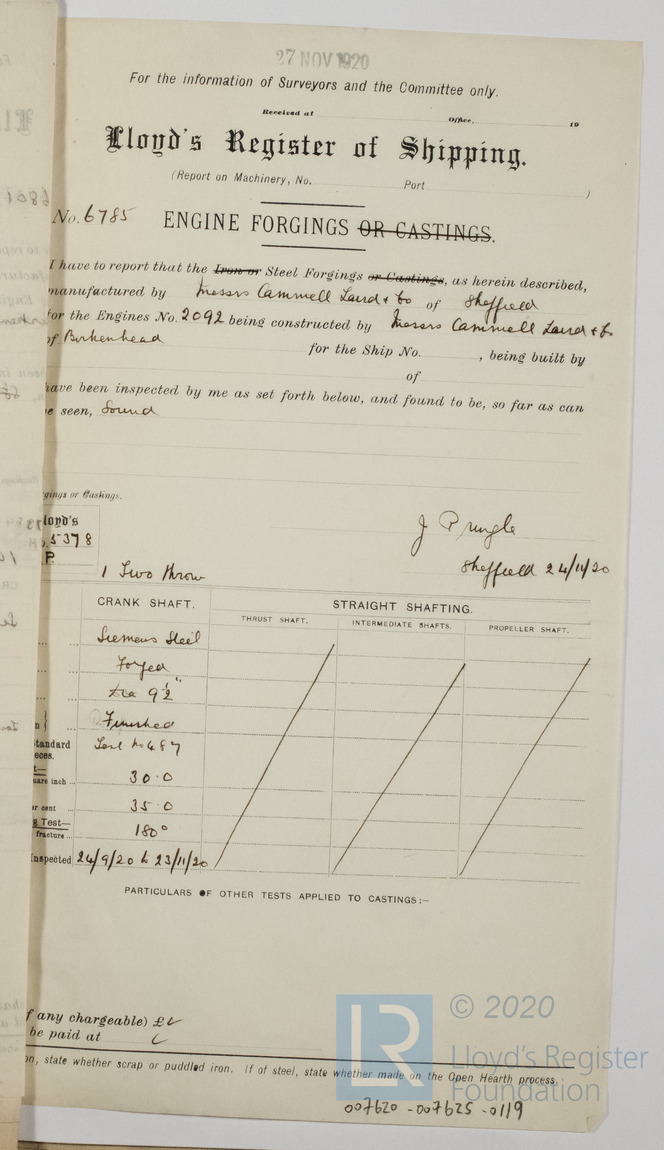 27 NOV 1920
For the information of Surveyors and the Committee only.
Received at Office, 19
Lloyd's Register of Shipping.
(Report on Machinery, No. Port )
No. 6785 ENGINE FORGINGS OR CASTINGS.
I have to report that the Iron or Steel Forgings or Castings, as herein described,
manufactured by Messrs Cammell Laird & Co of Sheffield
for the Engines No. 2092 being constructed by Messrs Cammell Laird & Co
of Birkenhead for the Ship No. , being built by
of
have been inspected by me as set forth below, and found to be, so far as can
be seen, Sound
gings or Castings.
loyd's
5378
P.
J Pringle
Sheffield 24/11/20
1 Two throw
CRANK SHAFT. STRAIGHT SHAFTING.
THRUST SHAFT. INTERMEDIATE SHAFTS. PROPELLER SHAFT.
Siemens Steel
Forged
dia 9½"
Finished
tandard Test No 487
eces.
t—
uare inch ... 30.0
er cent ... 35.0
g Test—
fracture ... 180°
Inspected 24/9/20 to 23/11/20
PARTICULARS OF OTHER TESTS APPLIED TO CASTINGS:—
f any chargeable) £
be paid at
on, state whether scrap or puddled iron. If of steel, state whether made on the Open Hearth process.
LR
© 2020
Lloyd's Register
Foundation
007620-007625-0119